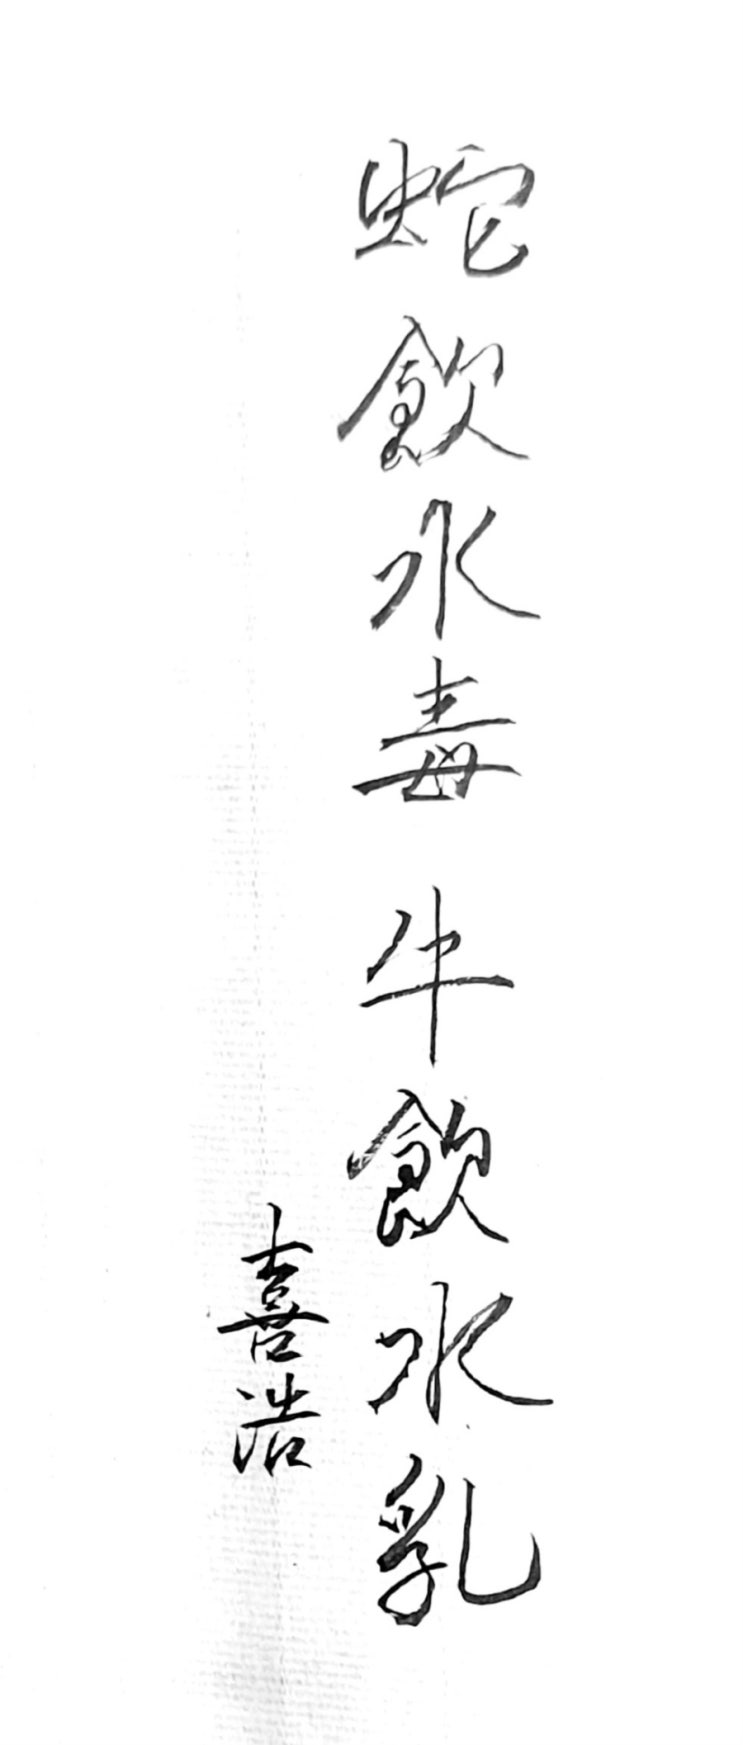 蛇飲水毒 牛飲水乳
喜浩